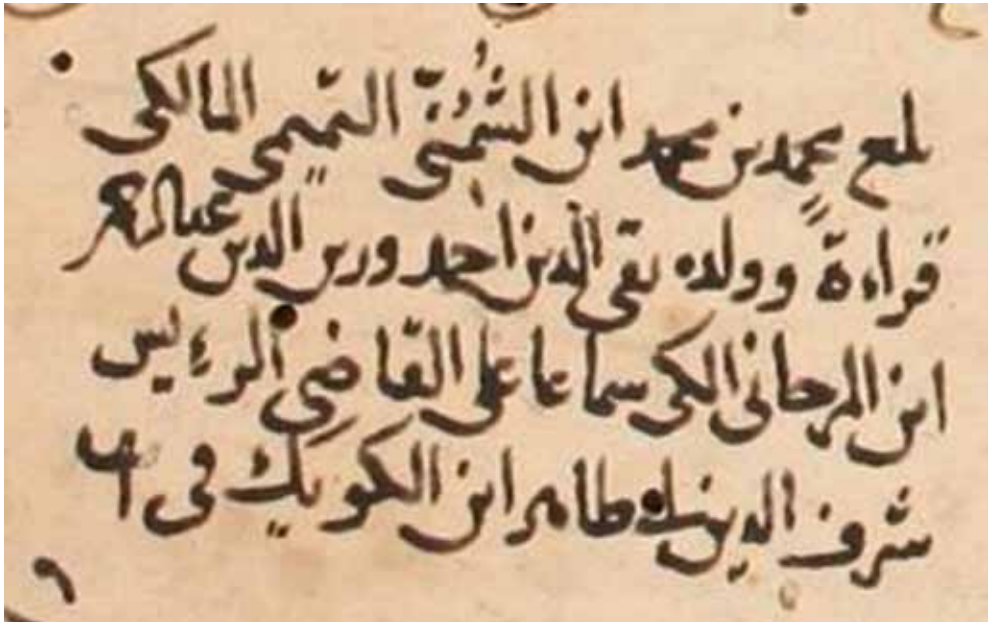 بلغ محمد بن محمد ابن الشُّمُنّي التّميمي المالكي
قراءةً وولده تقي الدين احمد وزين الدين عبدالرحمن
ابن المرجاني المكي سماعا على القاضي الرئيس
شرف الدين ابي طاهر ابن الكويك في